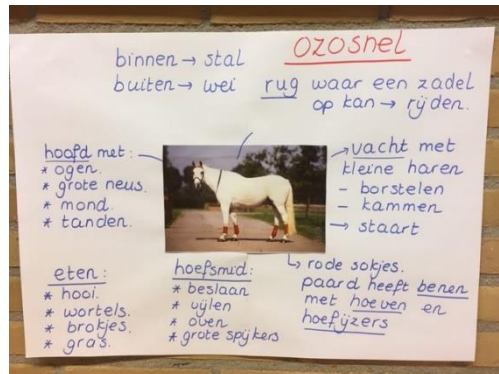 OZOSNEL
binnen → stal
buiten → wei
rug waar een zadel
op kan → rijden.
hoofd met:
* ogen.
* grote neus.
* mond.
* tanden.
→ vacht met
kleine haren
- borstelen
- kammen
→ staart
eten:
* hooi.
* wortels.
* brokjes.
* gras.
hoefsmid:
* beslaan
* vijlen
* oven
* grote spijkers
↳ rode sokjes.
paard heeft benen
met hoeven en
hoefijzers